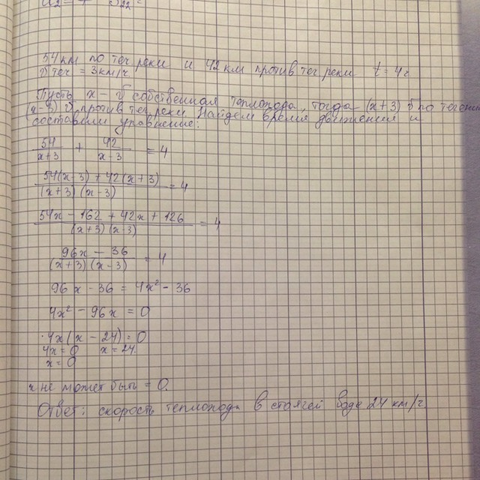 54 км по теч реки и 42 км против теч реки t = 4ч
V теч = 3 км/ч
Пусть x - V собственная теплохода, тогда (x+3) V по течени
(x-3) V против теч реки. Найдем время движения и
составим уравнение:
54/(x+3) + 42/(x-3) = 4
(54(x-3) + 42(x+3))/((x+3)(x-3)) = 4
(54x - 162 + 42x + 126)/((x+3)(x-3)) = 4
(96x - 36)/((x+3)(x-3)) = 4
96x - 36 = 4x² - 36
4x² - 96x = 0
4x(x - 24) = 0
4x = 0 x = 24
x = 0
x не может быть = 0.
Ответ: скорость теплохода в стоячей воде 24 км/ч